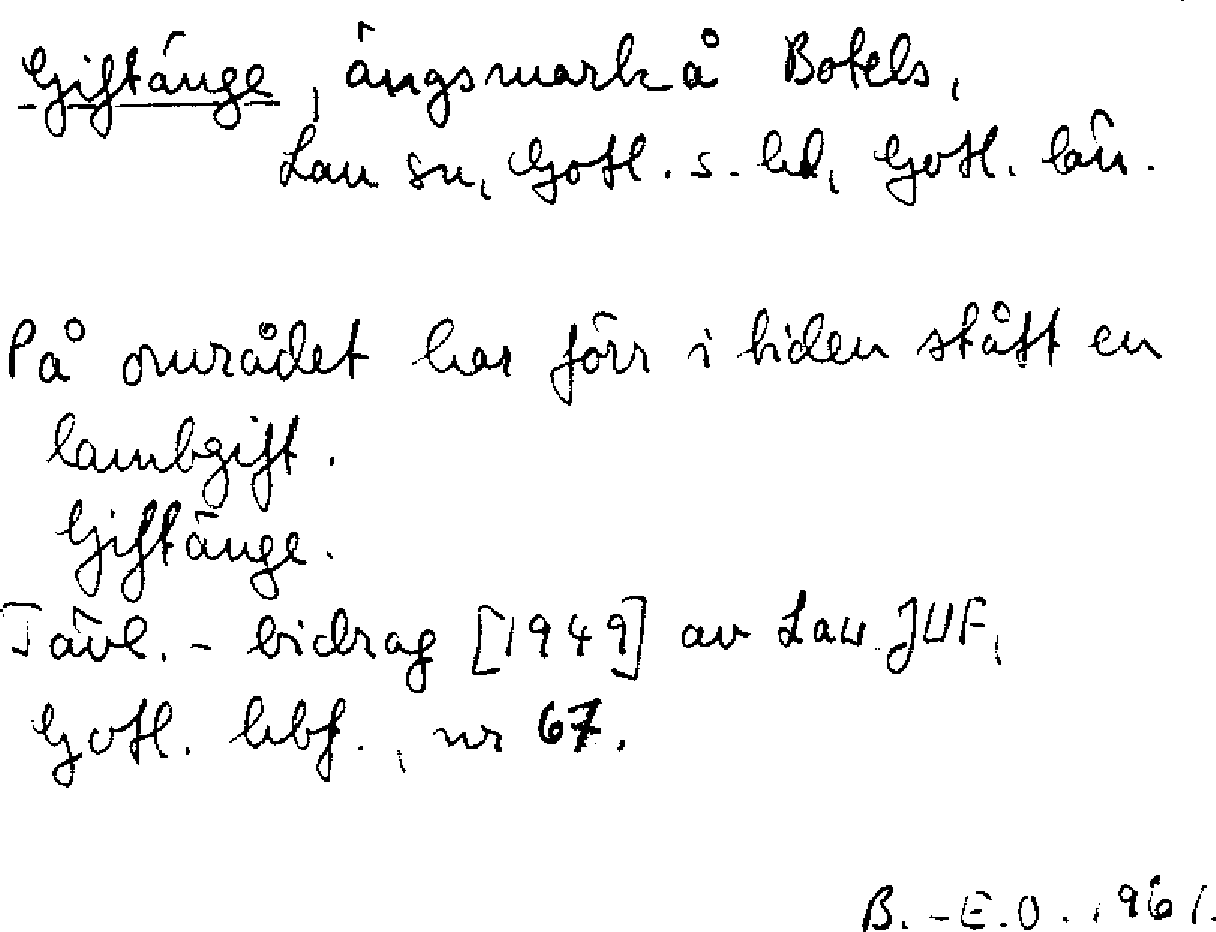 Giftänge, ängsmark å Botels,
Lau sn, Gotl. s. hd, Gotl. län.
På området har förr i tiden stått en
lambgift.
Giftänge.
Tävl. - bidrag [1949] av Lau JUF,
Gotl. hbf., nr 67.
B.-E.O. 1961.